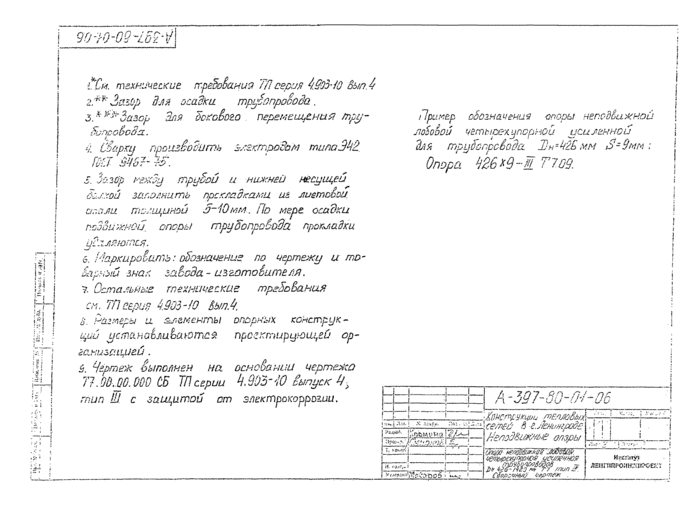 А-397-80-01-06
1.*См. технические требования ТП серия 4.903-10 Вып.4
2.** Зазор для осадки трубопровода.
3.*** Зазор для бокового перемещения тру-
бопровода.
4. Сварку производить электродом типа Э42
ГОСТ 9467-75.
5. Зазор между трубой и нижней несущей
балкой заполнить прокладками из листовой
стали толщиной 5-10мм. По мере осадки
подвижной опоры трубопровода прокладки
удаляются.
6. Маркировать: обозначение по чертежу и то-
варный знак завода-изготовителя.
7. Остальные технические требования
см. ТП серия 4.903-10 вып.4.
8. Размеры и элементы опорных конструк-
ций устанавливаются проектирующей ор-
ганизацией.
9. Чертеж выполнен на основании чертежа
Т7.00.00.000 СБ ТП серии 4.903-10 выпуск 4,
тип III с защитой от электрокоррозии.
Пример обозначения опоры неподвижной
лобовой четырехупорной усиленной
для трубопровода Dн=426 мм S=9мм:
Опора 426х9-III Т7.09.
А-397-80-01-06
Конструкции тепловых
сетей в г. Ленинграде
Неподвижные опоры
Опора неподвижная лобовая
четырехупорная усиленная
трубопроводов
Сборочный чертеж
Институт
ЛЕНГИПРОИНЖПРОЕКТ